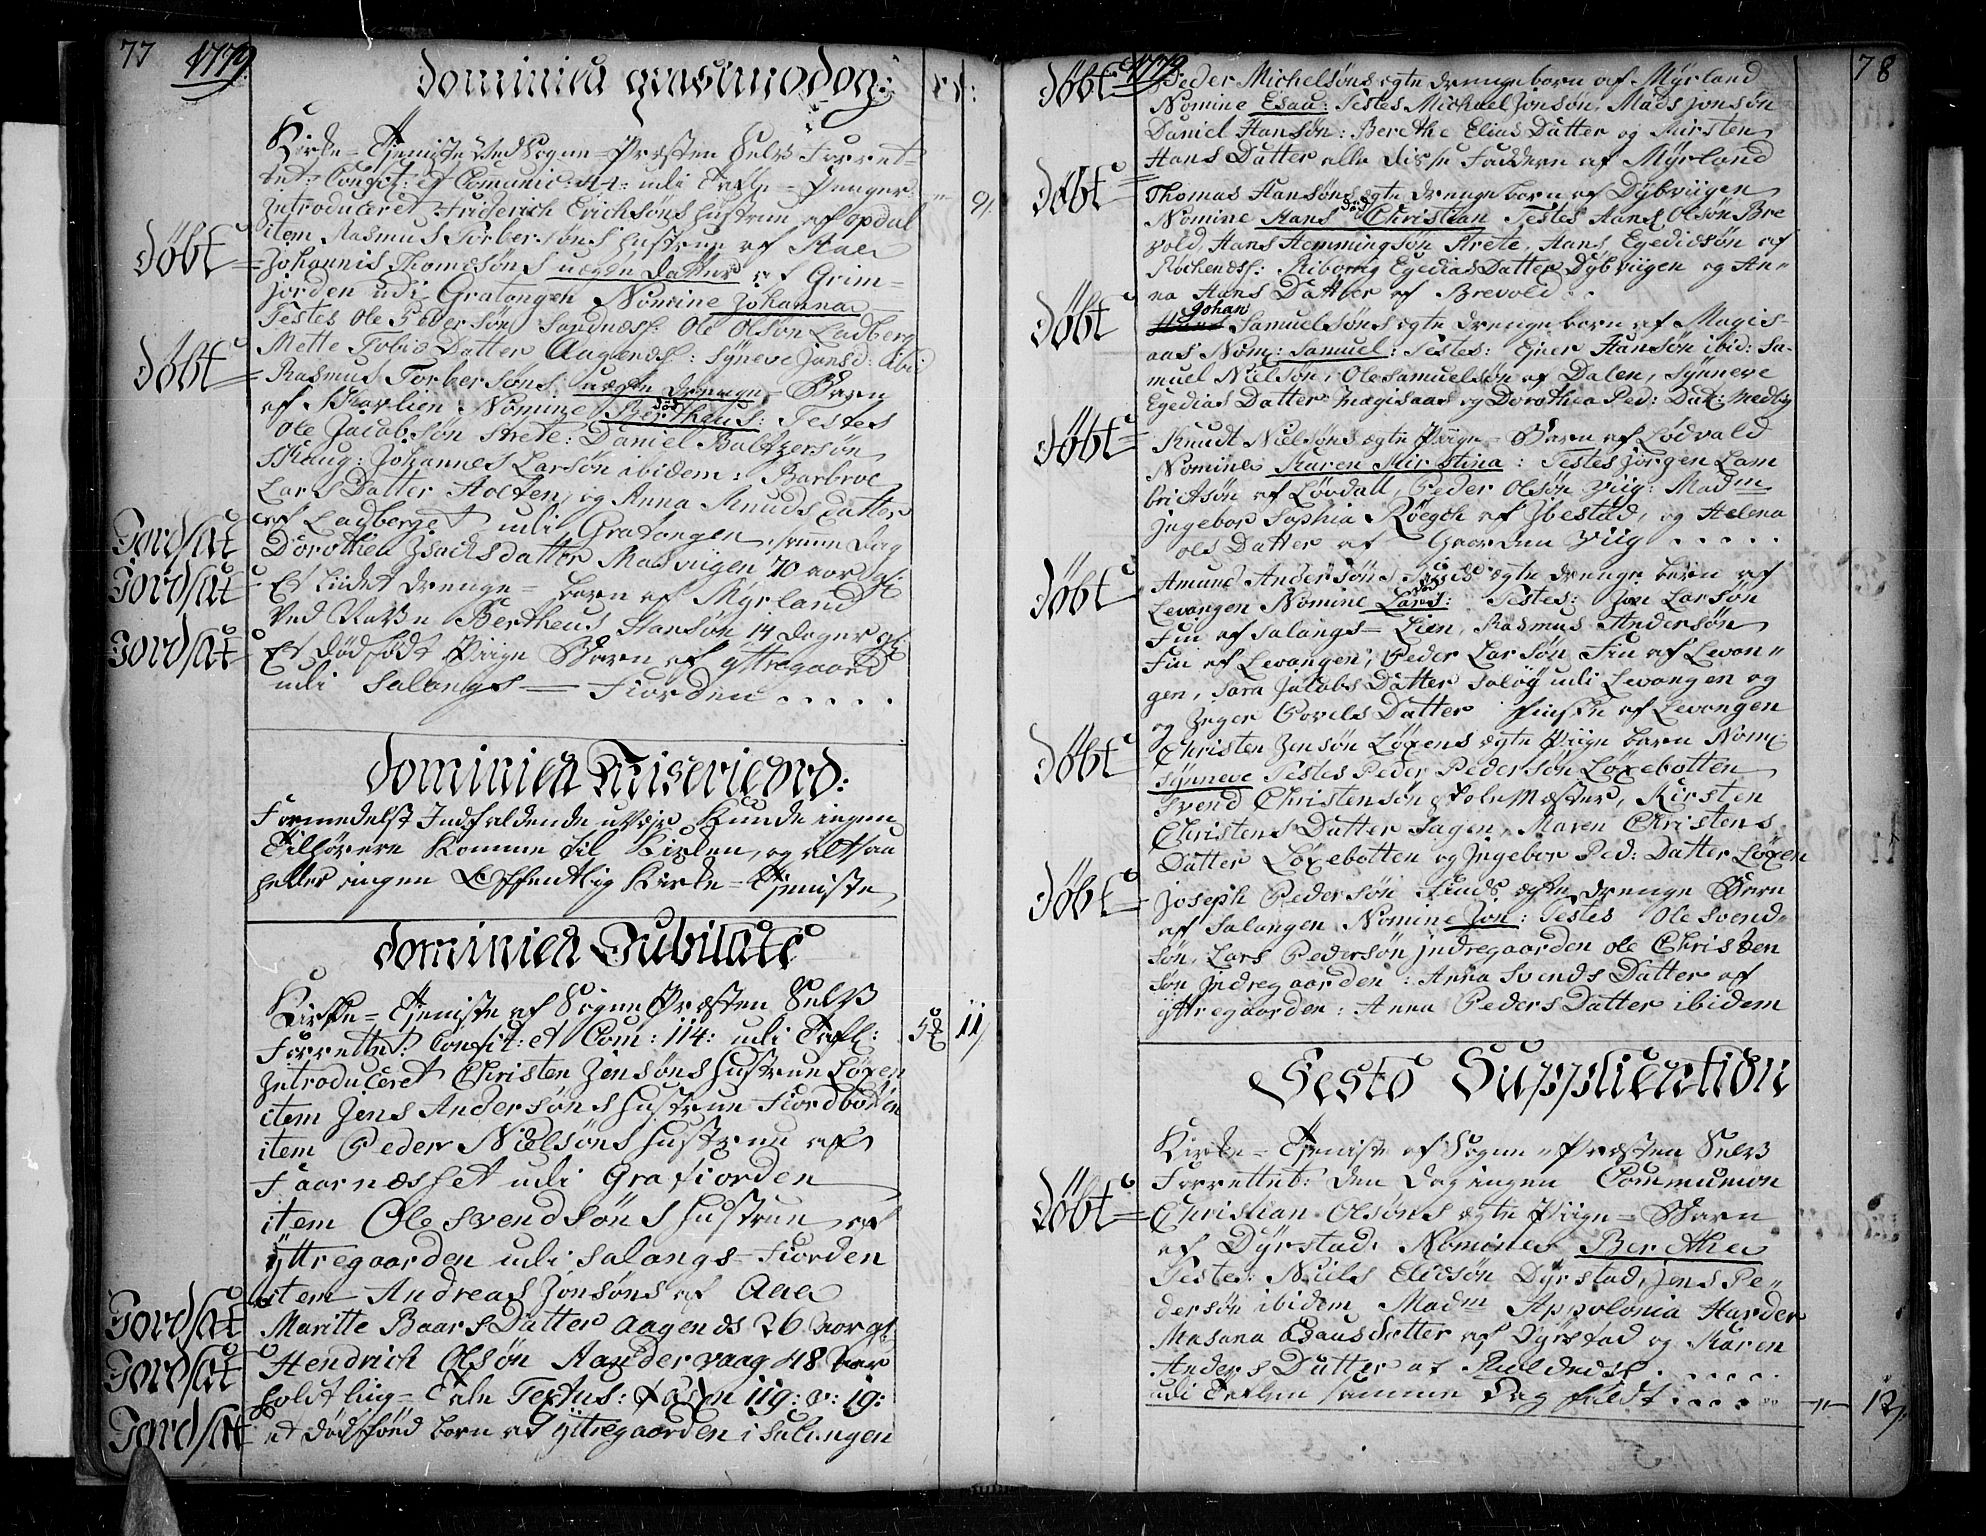 77 1779
Dominica quasimodog:
Kirke-Tjeniste ved Sogne-Præsten Selv Forret-
tet: Confit: et Comunic: 44: udi Tafle-Penger 9
Introduceret Friderich Erichsøns Hustrue af Opdal
item Rasmus Torbersøns Hustrue af
Døbt Johannis Thomæsøns uægte Datter af Grim-
jorden udi Gratangen Nomine Johanna
Testes Ole Pedersøn Sandnæss: Ole Olsøn Ladberg
Mette Tobis Datter Aagends: Syneve Jonsd: ibid
Døbt Rasmus Torbersøns uægte Drenge-Barn
af Skavlien Nomine Bertheus: død Testes
Ole Jacobsøn Strete: Daniel Baltzersøn
Skaug: Johannes Larsøn ibidem: Barbroe
Lars Datter Holten, og Anna Knuds Datter
af Ladberget udi Gratangen, samme Dag
Jordsat Dorothea Isachs datter Masviigen 70 aar gl:
Jordsat Et lidet Drenge-barn af Myrland
ved Navn Bertheus Hansøn 14 Dager gl:
Jordsat Et dødfødt Piige Barn af yttregaard
udi Salangs-Fiorden . . . . .
Dominica Misericord:
Formedelst Indfaldende uVeir kunde ingen
Tilhørere komme til Kirken, og altsaa
heller ingen Offentlig Kirke-Tjeniste
Dominica Jubilate
Kirke-Tjeniste af Sogne Præsten Selv
Forrettet: Confit: et Com: 114: udi Tafl: 11
Introduceret Christen Jensøns Hustrue Løxen
item Jens Andersøns Hustrue Fiordbotten
item Peder Nielsøns Hustrue af
Faarnæsset udi Grafiorden
item Ole Svendsøns Hustrue af
yttregaarden udi Salangs-Fiorden
item Andreas Jonsøns af Aae
Jordsat Maritte Baars Datter Aagends 26 aar gl:
Jordsat Hendrich Olsøn Hander vaag 48 aar
holdt Liig-Tale Textus: 119: v: 19:
Jordsat et dødfød barn af yttregaarden i Salangen
1779 78
Døbt Peder Michelsøns ægte drengebarn af Myrland
Nomine Esau: Testes Michael Jonsøn, Mads Jonsøn
Daniel Hansøn: Berethe Elias Datter og Kirsten
Hans Datter alle disse Faddern af Myrland
Døbt Thomas Hansøns ægte drenge barn af Dybviigen
Nomine Hans Christian død Testes Hans Olsøn Bre
vold, Hans Hemmingsøn Strete, Hans Egediesøn af
Røchenæss: Riborig Egedias Datter Dybviigen og An-
na Hans Datter af Brevold . .
Døbt Johan Samuelsøns ægte drengebarn af Magis-
aas Nom: Samuel: Testes: Ejner Hansøn ibid: Sa-
muel Nielsøn, Ole Samuelsøn af Dalen, Synneve
Egedias Datter Magisaas og Dorothea Ped: Dat: Medby
Døbt Knudt Nielsøns ægte Piige-Barn af Lødvald
Nomine Karen Kirstina: Testes Jørgen Lam
brictsøn af Løvdall, Peder Olsøn Viig: Madm
Ingebor Sophia Røegth af Ibestad, og Helena
Ols Datter af Gaarden Viig . . . . .
Døbt Amund Andersøn Finds ægte drenge barn af
Levangen Nomine Lars: død Testes: Jon Larsøn
Fin af Salangs-Lien, Rasmus Andersøn
Fin af Levangen, Peder Larsøn Fin af Levan-
gen, Sara Jacobs Datter Saløy udi Levangen og
og Inger Povels Datter Finske af Levangen
Døbt Christen Jensøn Løxens ægte Piige barn Nom:
Synneve Testes Peder Pedersøn Løxebotten
Svend Christensøn Skolemæster, Kirsten
Christens Datter Sagen, Maren Christens
Datter Løxebotten og Ingebor Ped: Datter Løxen
Døbt Joseph Pedersøn Finds ægte drenge Barn
af Salangen Nomine Jon: Testes Ole Svend-
søn, Lars Pedersøn Indregaarden Ole Christen
søn Indregaarden: Anna Svends Datter af
yttregaarden: Anna Peders Datter ibidem
Festo Supplication
Kirke-Tjeniste af Sogne-Præsten Selv
Forrettet: den Dag ingen Communion
Døbt Christian Olsøns ægte Piige-Barn
af Dyrstad: Nomine Berethe
Testes: Niels Eliasøn Dyrstad, Jens Pe-
dersøn ibidem Madm Appolonia Harder
Masana Esaus datter af Dyrstad og Karen
Anders Datter af . . . . .
udi Taflen samme Dag faldt . . . . . 12